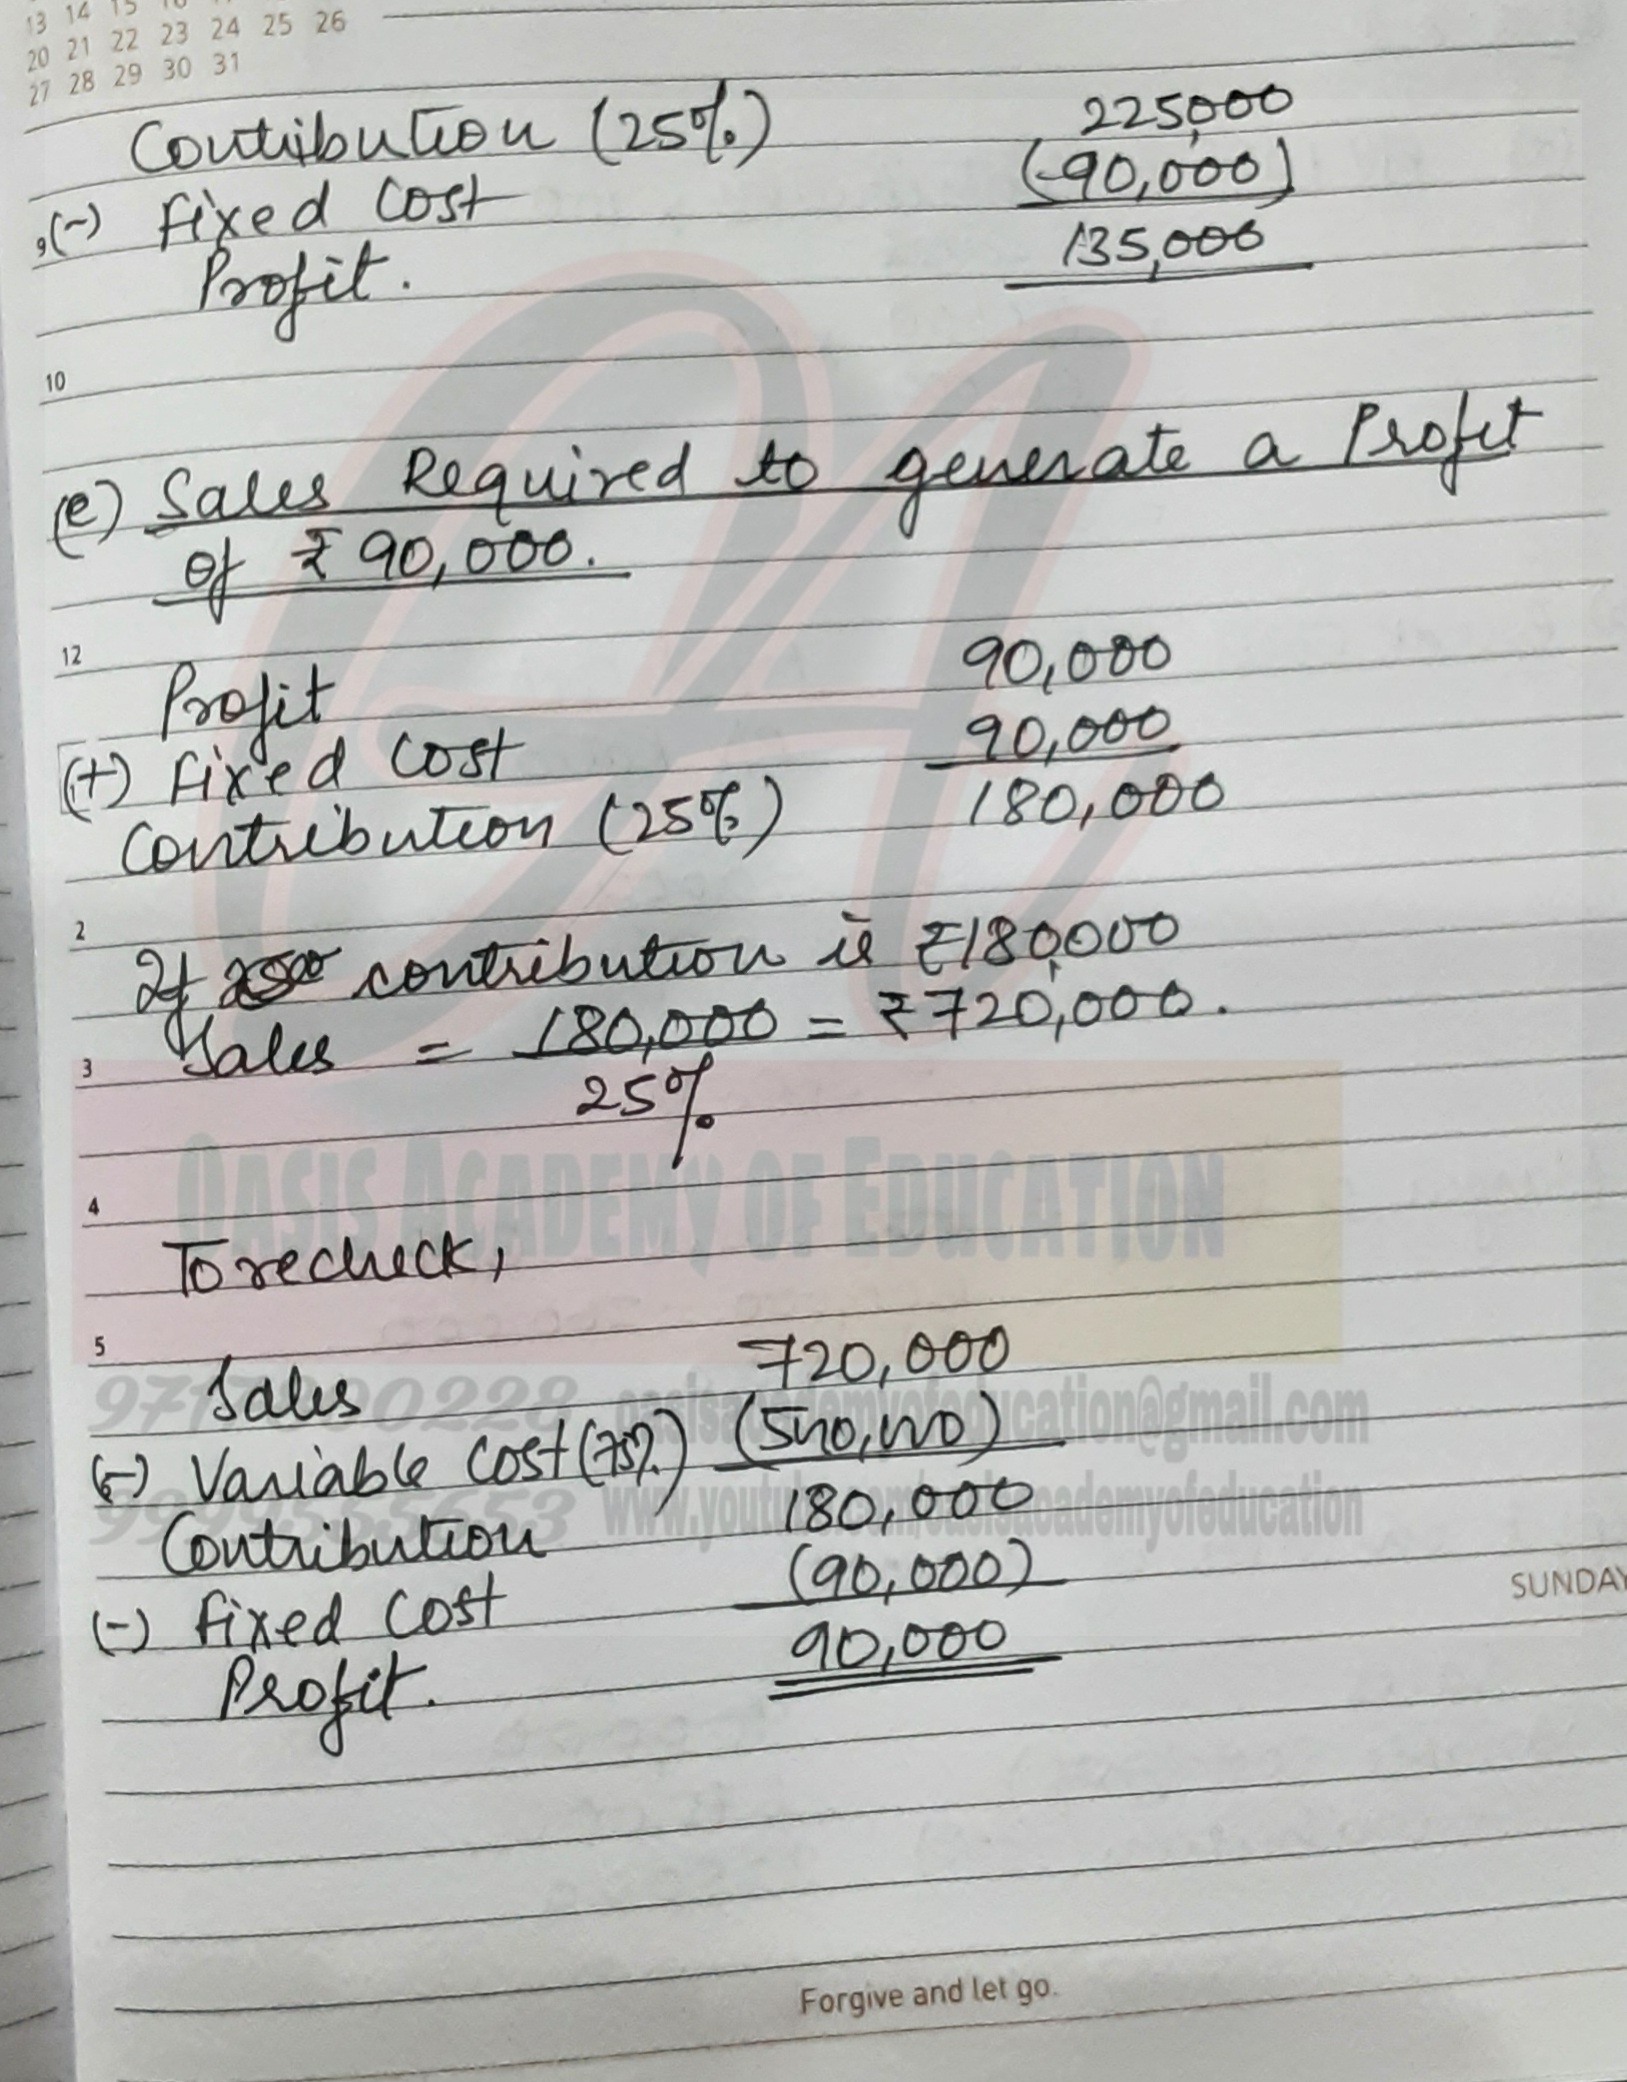 20 21 22 23 24 25 26
27 28 29 30 31
Contribution (25%) 225,000
(-) Fixed Cost (-90,000)
Profit. 135,000
10
(e) Sales Required to generate a Profit
of ₹ 90,000.
12
Profit 90,000
(+) Fixed Cost 90,000
Contribution (25%) 180,000
2
If contribution is ₹180,000
3
Sales = 180,000 = ₹720,000.
25%
OASIS ACADEMY OF EDUCATION
4
To recheck,
5
Sales 720,000
(-) Variable Cost (75%) (540,000)
Contribution 180,000
(-) Fixed Cost (90,000)
SUNDAY
Profit. 90,000
Forgive and let go.